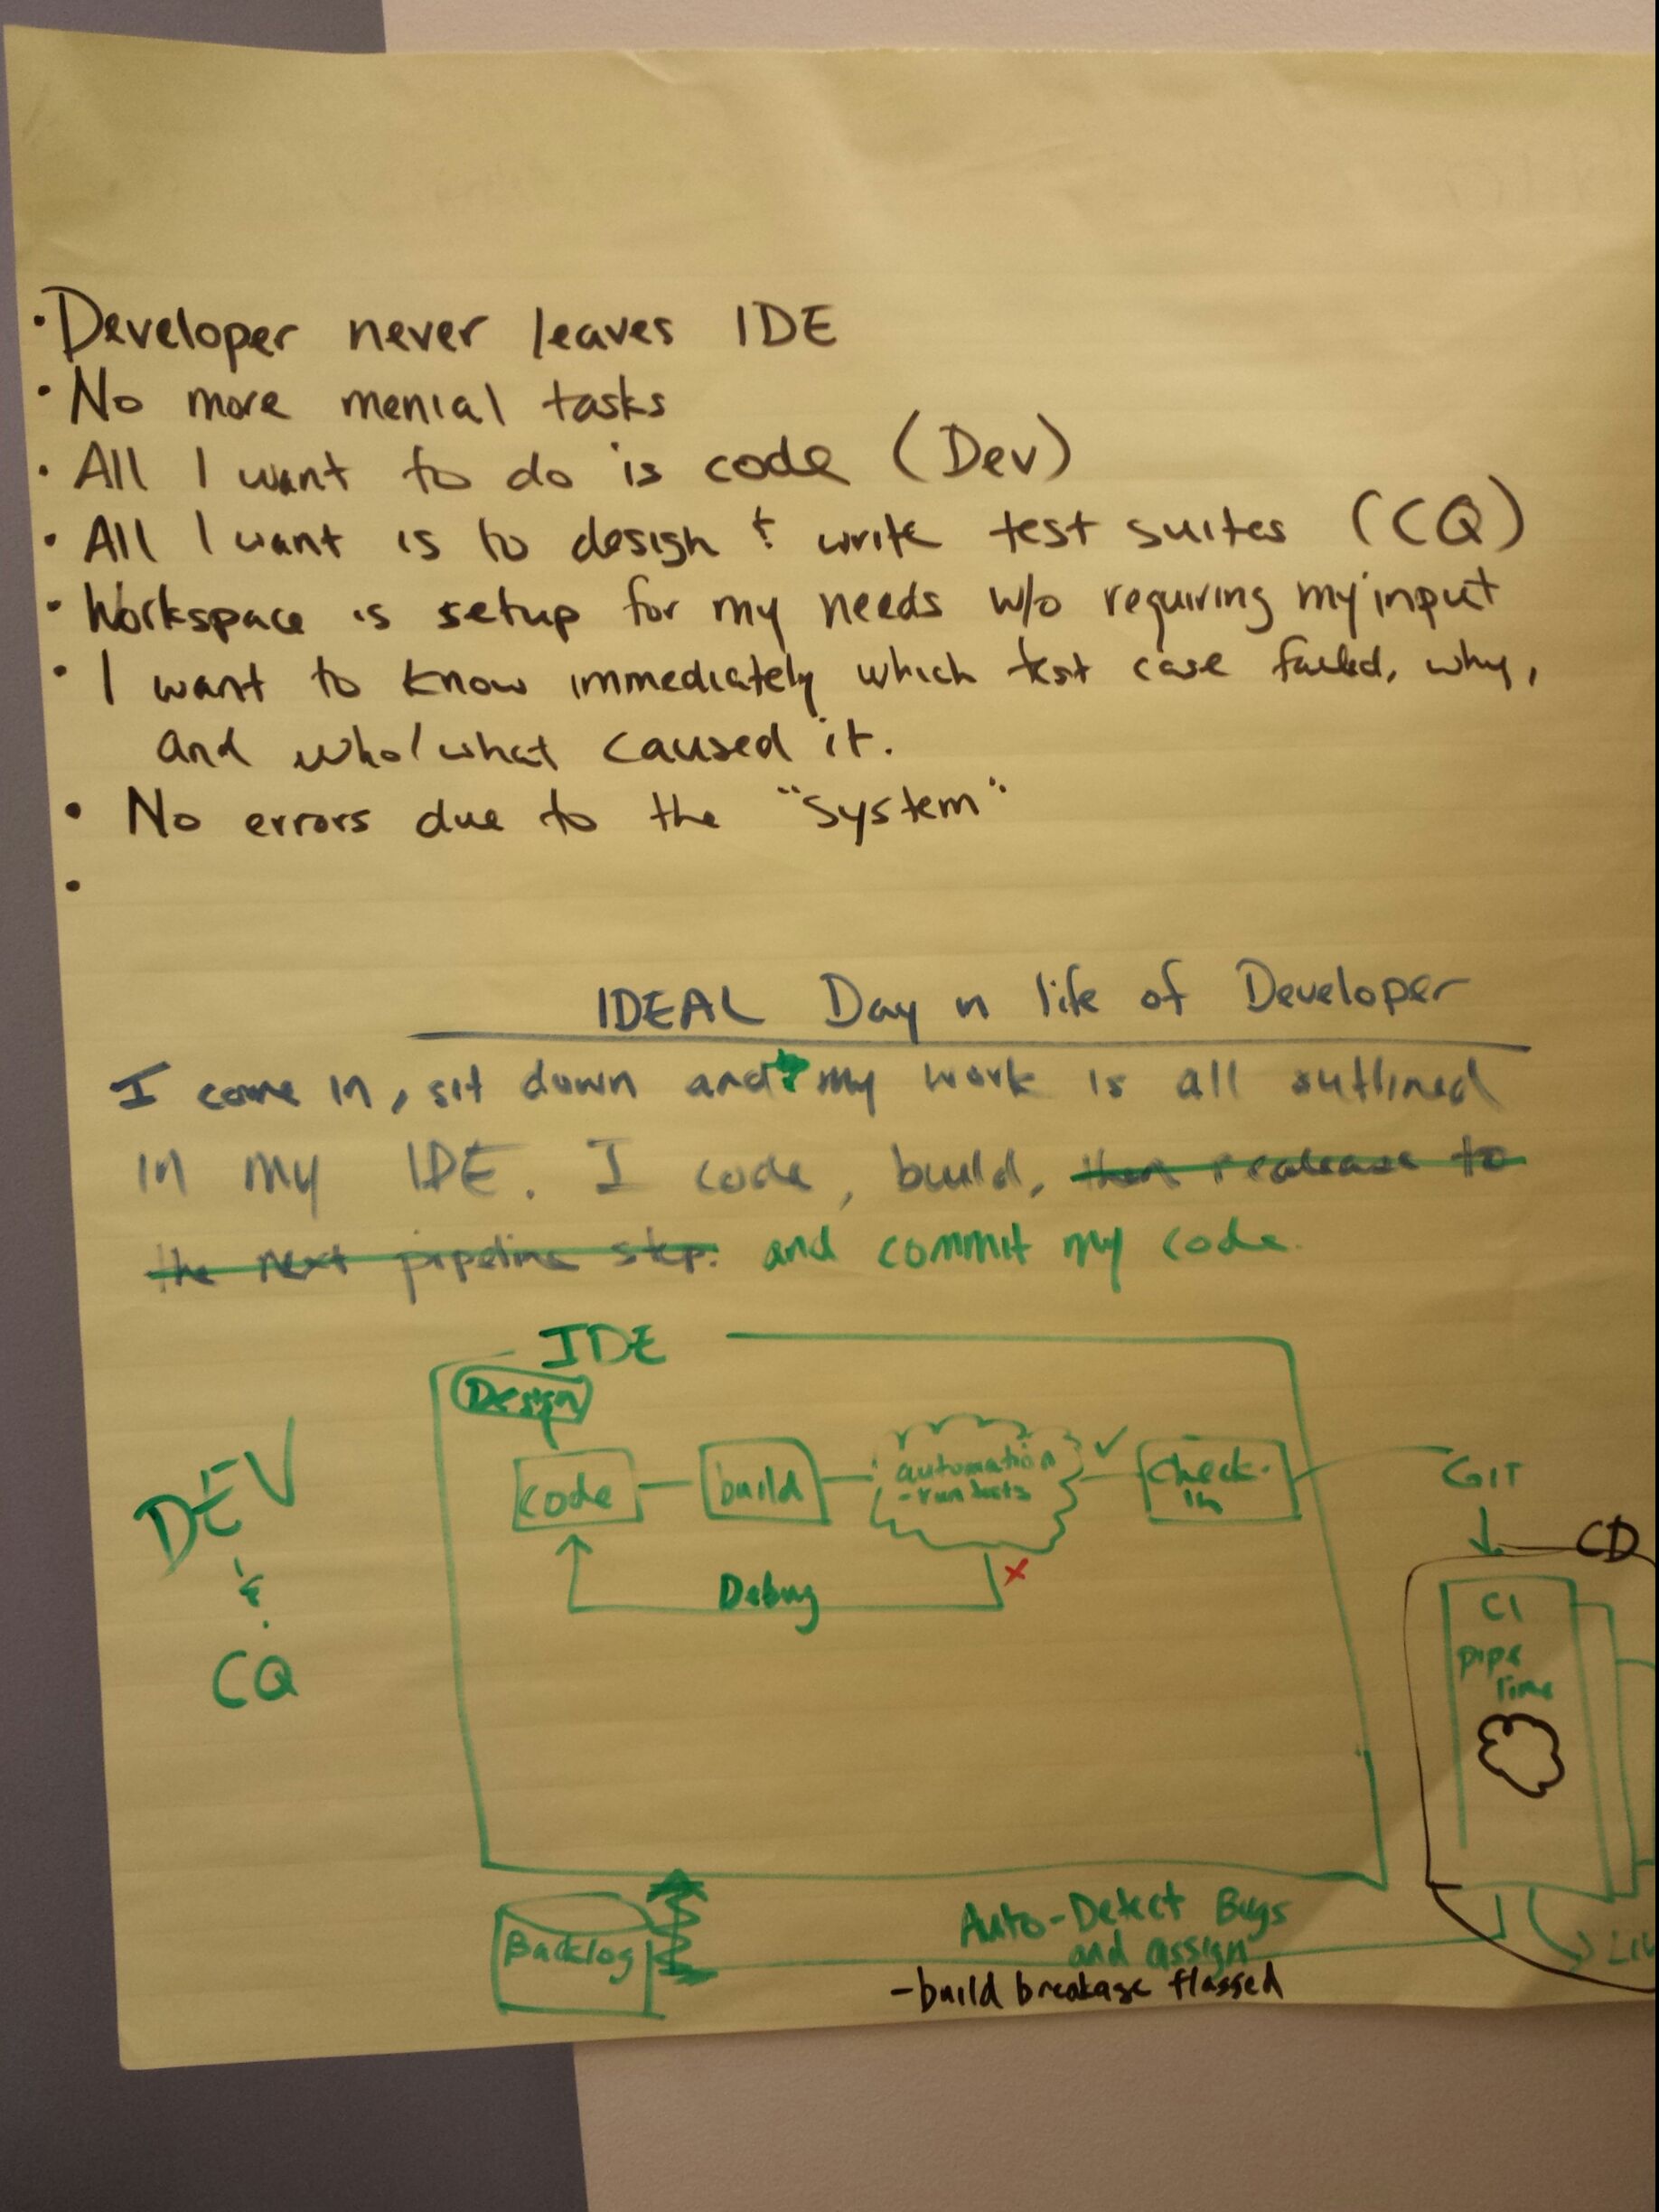 • Developer never leaves IDE
• No more menial tasks
• All I want to do is code (Dev)
• All I want is to design & write test suites (CQ)
• Workspace is setup for my needs w/o requiring my input
• I want to know immediately which test case failed, why,
and who/what caused it.
• No errors due to the "System"
•
IDEAL Day n life of Developer
I come in, sit down and my work is all outlined
in my IDE. I code, build, then release to
the next pipeline step. and commit my code.
IDE
Design
DEV
&
CQ
code
build
automation
- run tests
✓
Check-
in
GIT
Debug
x
CD
CI
pipe
line
Backlog
Auto-Detect Bugs
and assign
- build breakage flagged